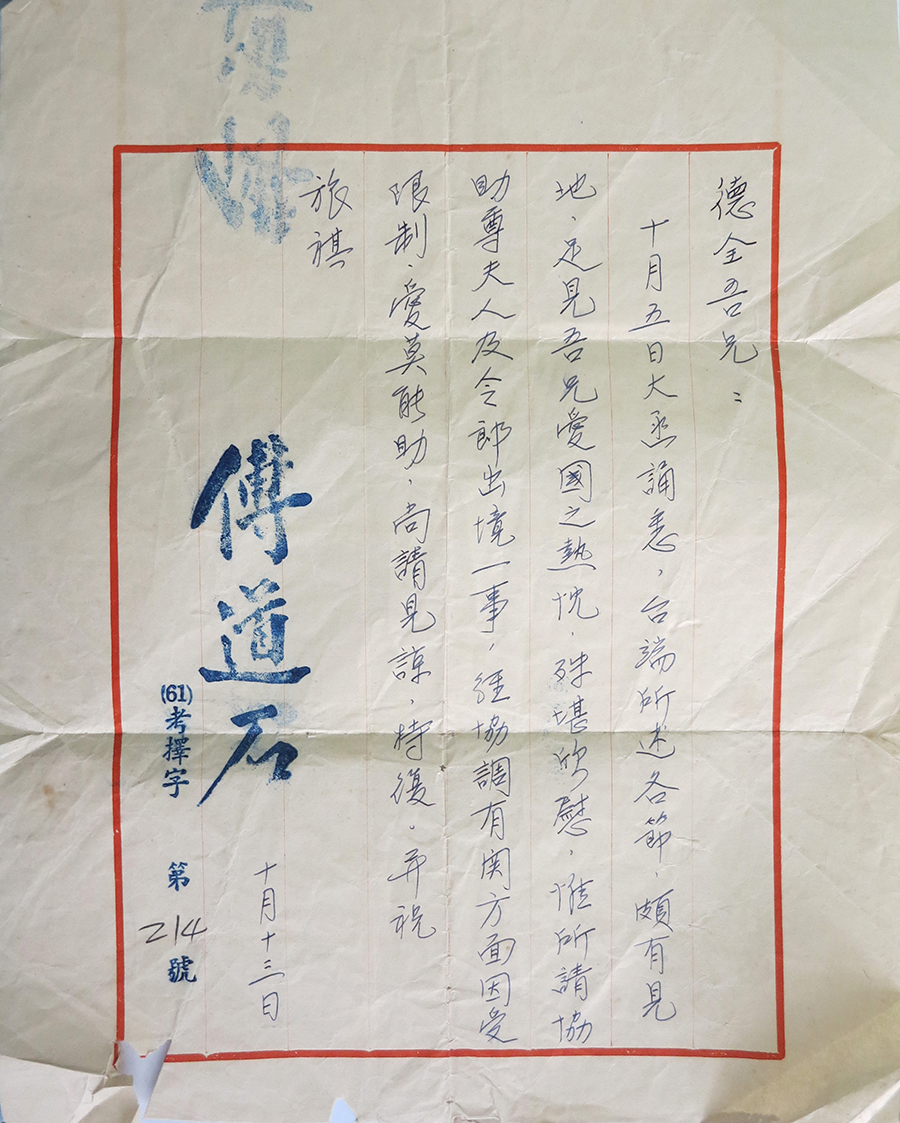 德全吾兄：
十月五日大函誦悉，台端所述各節，頗有見
地，足見吾兄愛國之熱忱，殊堪欣慰，惟所請協
助尊夫人及令郎出境一事，經協調有関方面因受
限制，愛莫能助，尚請見諒，特復。并祝
旅祺
傅道石
十月十三日
(61)考擇字 第214號